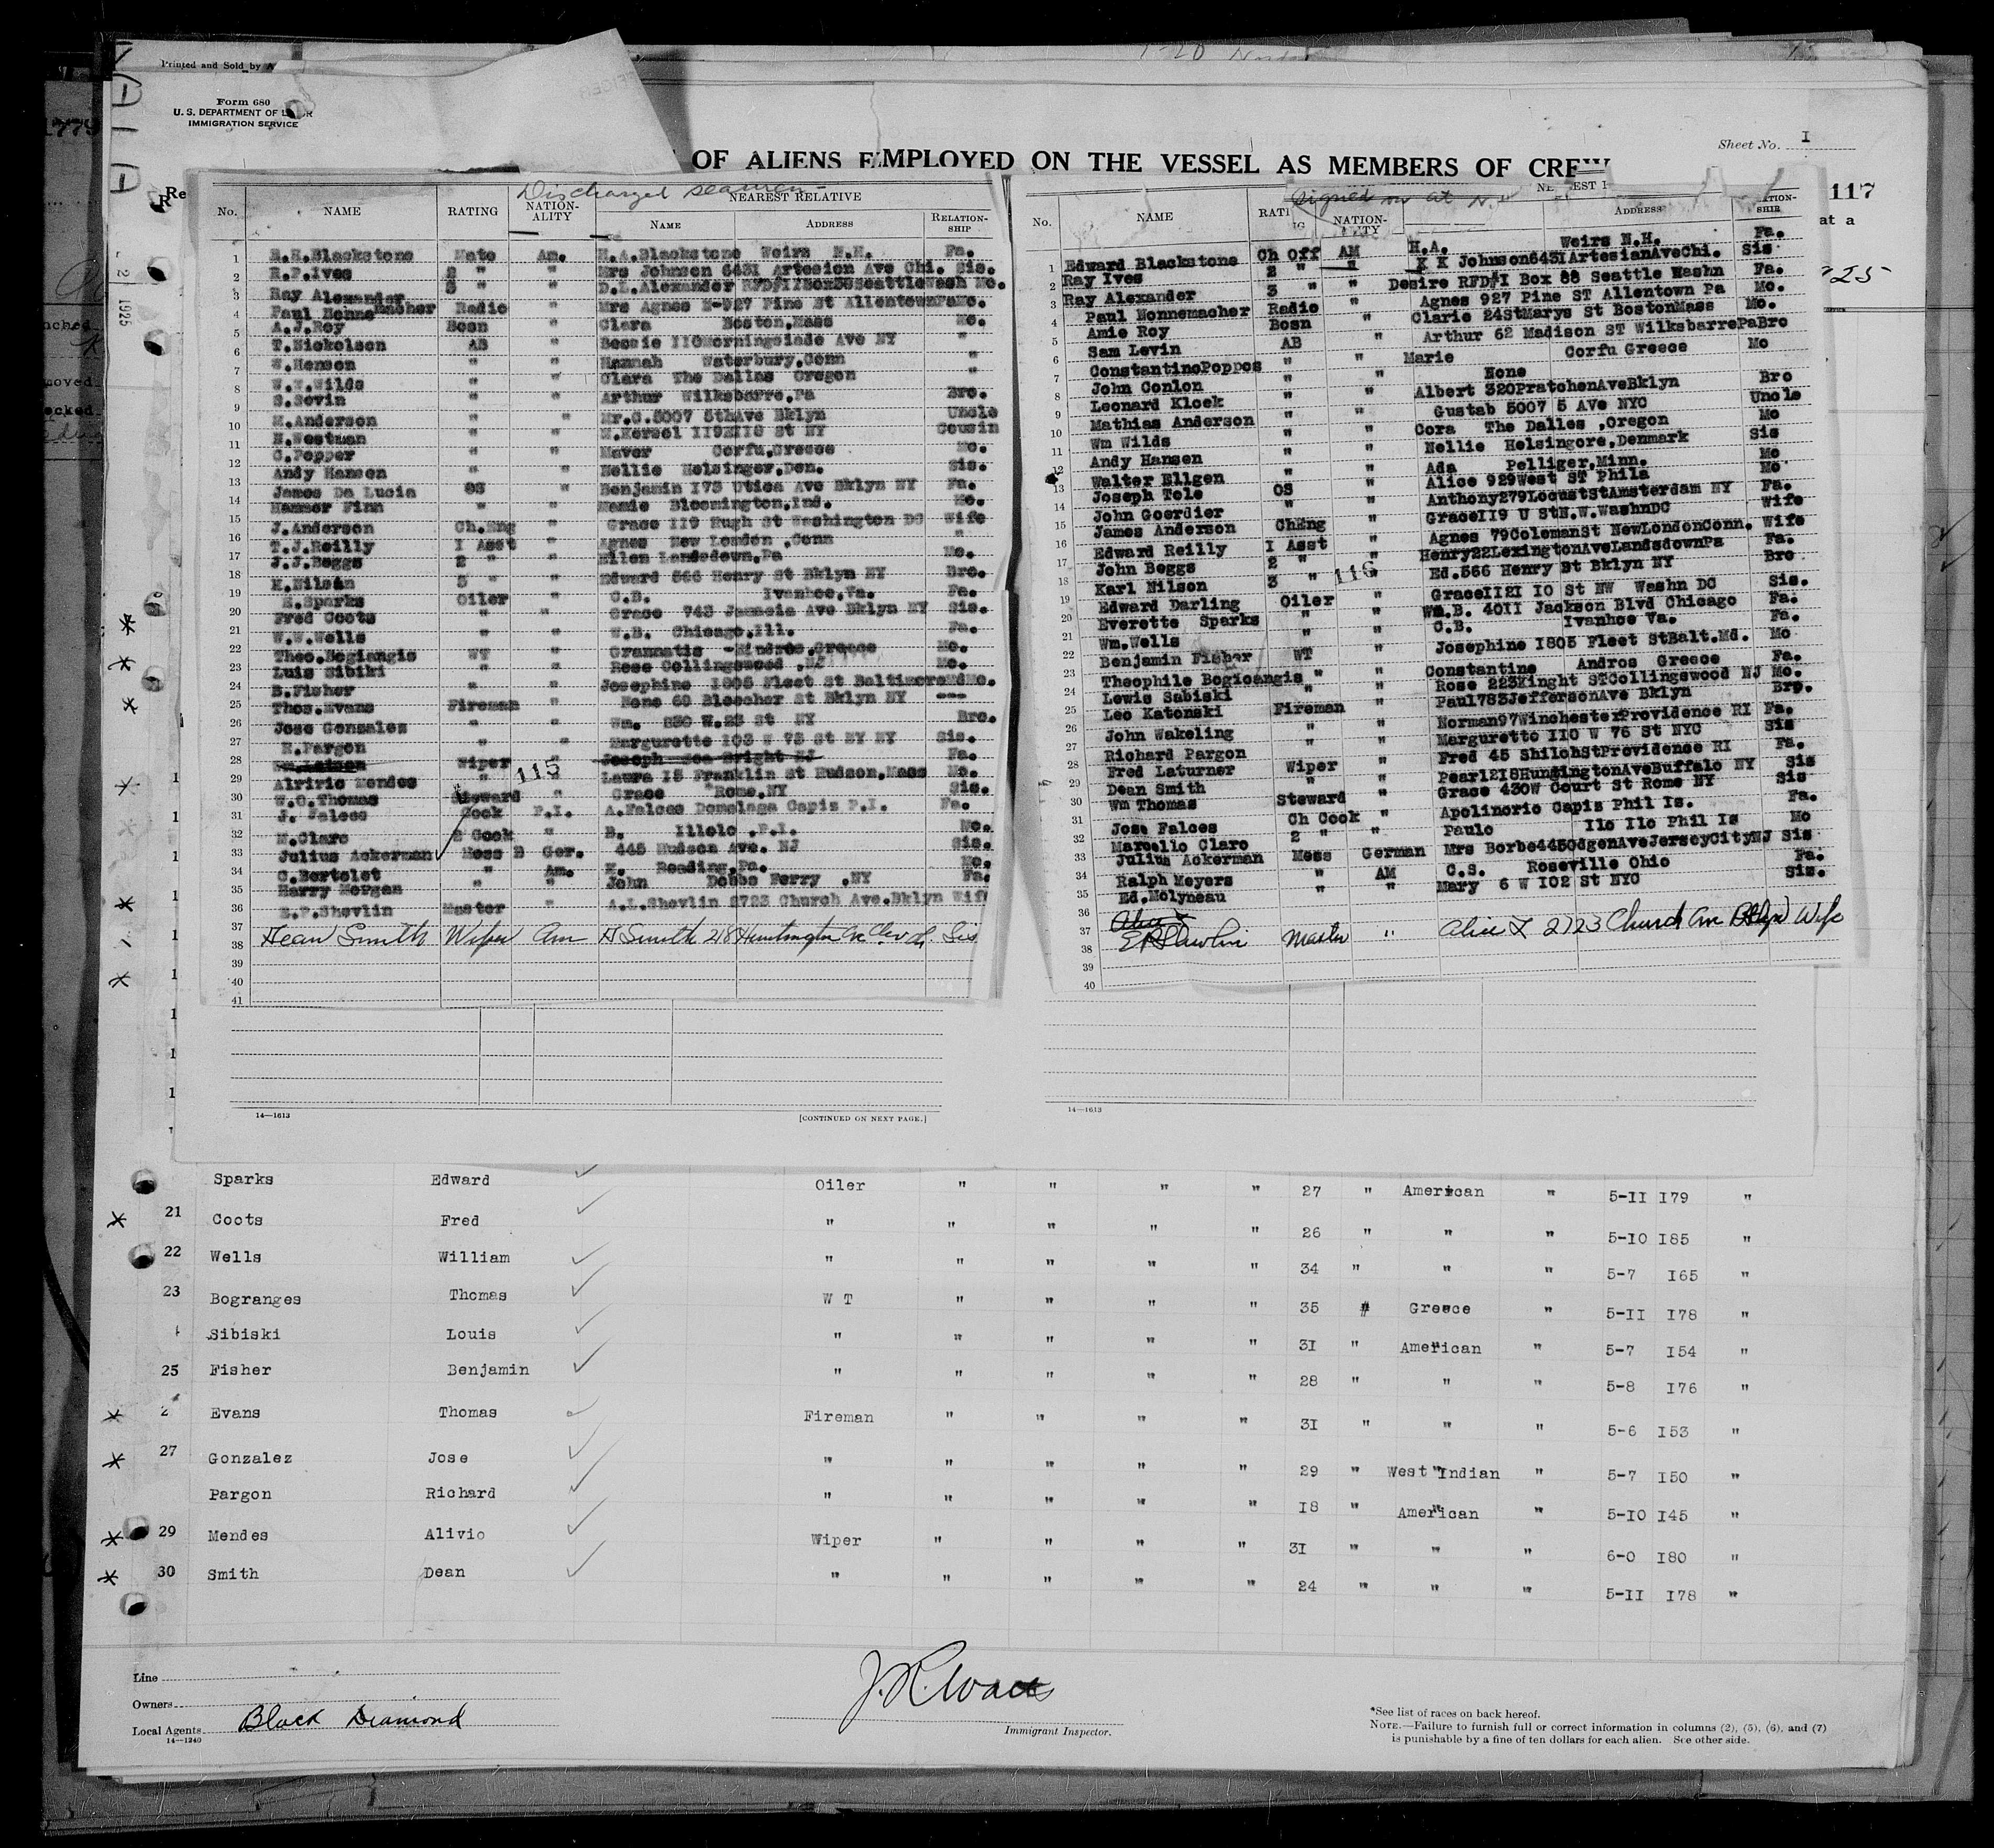 Printed and Sold by
Form 680
U. S. DEPARTMENT OF
IMMIGRATION SERVICE
Sheet No. I
OF ALIENS EMPLOYED ON THE VESSEL AS MEMBERS OF CREW
117
at a
25
Discharged seamen
No. NAME RATING NATION-ALITY NEAREST RELATIVE
NAME ADDRESS RELATION-SHIP
1 H.H.Blackstone Mate Am. H.A.Blackstone Weirs N.H. Fa.
2 R.P.Ives 2 " " Mrs Johnson 6431 Artesion Ave Chi. Sis.
3 Ray Alexander 3 " " D.L.Alexander Mo.
4 Paul Nonnemacher Radio " Mrs Agnes N-927 Pine St AllentownPa Mo.
5 A.J.Roy Bosn " Clara Boston,Mass Mo.
6 T.Nickolson AB " Bessie II0Morningside Ave NY "
7 W.Henson " " Hannah Waterbury,Conn "
8 W.W.Wilds " " Clara The Dallas Oregon "
9 S.Sevin " " Arthur Wilksbarre,Pa Bro.
10 M.Anderson " " Mr.C.5007 5thAve Bklyn Uncle
11 H.Westman " " NY Cousin
12 C.Popper " " Mavor Corfu,Greece Mo.
13 Andy Hansen " " Nellie Helsinger,Den. Sis.
14 James De Lucia OS " Benjamin 175 Utica Ave Bklyn NY Fa.
15 Hammer Finn " " Mamie Bloomington,Ind. Mo.
16 J.Anderson Ch.Eng " Grace II9 Hugh St Washington DC Wife
17 T.J.Reilly I Asst " Agnes New London ,Conn "
18 J.J.Beggs 2 " " Ellen Landsdown,Pa Mo.
19 K.Nilsen 3 " " Edward 566 Henry St Bklyn NY Bro.
20 E.Sparks Oiler " C.B. Ivanhoe,Va. Fa.
21 Fred Coots " " Grace 743 Jamacia Ave Bklyn NY Sis.
22 W.W.Wells " " W.B. Chicago,Ill. Fa.
23 Theo.Bogiangis WT " Grammatis -Andros,Greece Mo.
24 Luis Sibiki " " Rose Collingswood ,NJ Mo.
25 B.Fisher " " Josephine I805 Fleet St BaltimoreMd Mo.
26 Thos.Evans Fireman " None 60 Bleecher St Bklyn NY ---
27 Jose Gonzales " " Wm. 830 W.23 St NY Bro.
28 R.Pargon " " Margurette I03 W 73 St NY NY Sis.
Wiper Joseph Sea Bright NJ Fa.
29 Alriric Mendes " 115 " Laura I5 Franklin St Hudson,Mass Mo.
30 W.C.Thomas Steward " Grace Rome,NY Sis.
31 J. Falces Cook P.I. A.Falces Domolaga Capis P.I. Fa.
32 M.Claro 2 Cook " B. Illolo .P.I. Mo.
33 Julius Ackerman Mess B Ger. 445 Hudson Ave. NJ Sis.
34 C.Bertolet " Am. H. Reading,Pa. Mo.
35 Harry Morgan " " John Dobbs Ferry .NY Fa.
36 E.P.Shevlin Master " A.L.Shevlin 2723 Church Ave.Bklyn Wife
37 Dean Smith Wiper Am Smith 218 Huntington Ave Sis
38
39
40
41
14—1613 [CONTINUED ON NEXT PAGE.]
signed on at N.Y.
No. NAME RATING NATION-ALITY ADDRESS
1 Edward Blackstone Ch Off AM H.A. Weirs N.H. Fa.
2 Ray Ives 2 " " Johnson6431ArtesianAveChi. Sis
3 Ray Alexander 3 " " Desire RFD#I Box 88 Seattle Washn Fa.
4 Paul Nonnemacher Radio " Agnes 927 Pine ST Allentown Pa Mo.
5 Amie Roy Bosn " Clarie 24StMarys St BostonMass Mo.
6 Sam Levin AB " Arthur 62 Madison ST WilksbarrePa Bro
7 ConstantinePoppos " " Marie Corfu Greece Mo
8 John Conlon " " None
9 Leonard Kloek " " Albert 320PratchenAveBklyn Bro
10 Mathias Anderson " " Gustab 5007 5 AVe NYC Uncle
11 Wm Wilds " " Cora The Dalles ,Oregon Mo
12 Andy Hansen " " Nellie Helsingore,Denmark Sis
13 Walter Ellgen " " Ada Pelliger,Minn. Mo
14 Joseph Tole OS " Alice 929West ST Phila Mo
15 John Goerdier " " Anthony279LocustStAmsterdam NY Fa.
16 James Anderson ChEng " GraceII9 U StN.W.WashnDC Wife
17 Edward Reilly I Asst " Agnes 79ColemanSt NewLondonConn. Wife
18 John Beggs 2 " " Henry22LexingtonAveLandsdownPa Fa.
19 Karl Nilson 3 " 116 " Ed.566 Henry St Bklyn NY Bro
20 Edward Darling Oiler " GraceII2I IO St NW Washn DC Sis.
21 Everette Sparks " " Wm.B. 40II Jackson Blvd Chicago Fa.
22 Wm.Wells " " C.B. Ivanhoe Va. Fa.
23 Benjamin Fisher WT " Josephine I805 Fleet StBalt.Md. Mo
24 Theophile Bogioangis " " Constantine Andros Greece Fa.
25 Lewis Sabiski " " Rose 223Kinght STCollingswood NJ Mo.
26 Leo Katonski Fireman " Paul783JeffersonAve Bklyn Bro.
27 John Wakeling " " Norman97WinchesterProvidence RI Fa.
28 Richard Pargon " " Margurette II0 W 76 St NYC Sis
29 Fred Laturner Wiper " Fred 45 ShilohStProvidence RI Fa.
30 Dean Smith " " Pearl218HuntingtonAveBuffalo NY Sis
31 Wm Thomas Steward " Grace 430W Court St Rome NY Sis
32 Jose Falces Ch Cook " Apolinorio Capis Phil Is. Fa.
33 Marcello Claro 2 " " Paulo Ilo Ilo Phil Is Mo
34 Julius Ackerman Mess German Mrs Borbe445OdgenAveJerseyCityNJ Sis
35 Ralph Meyers " AM C.S. Roseville Ohio Fa.
36 Ed.Molyneau " " Mary 6 W I02 St NYC Sis.
37
38 Master " Alice L 2723 Church Ave Bklyn Wife
39
40
14—1613
Sparks Edward Oiler " " " " 27 " American " 5-II I79 "
21 Coots Fred " " " " " 26 " " " 5-IO I85 "
22 Wells William " " " " " 34 " " " 5-7 I65 "
23 Bogranges Thomas W T " " " " 35 " Greece " 5-II I78 "
Sibiski Louis " " " " " 3I " American " 5-7 I54 "
25 Fisher Benjamin " " " " " 28 " " " 5-8 I76 "
2 Evans Thomas Fireman " " " " 31 " " " 5-6 I53 "
27 Gonzalez Jose " " " " " 29 " West Indian " 5-7 I50 "
Pargon Richard " " " " " I8 " American " 5-IO I45 "
29 Mendes Alivio Wiper " " " " 3I " " " 6-0 I80 "
30 Smith Dean " " " " " 24 " " " 5-II I78 "
Line
Owners
Local Agents Black Diamond
14—1240
Immigrant Inspector.
*See list of races on back hereof.
NOTE.—Failure to furnish full or correct information in columns (2), (5), (6), and (7)
is punishable by a fine of ten dollars for each alien. See other side.